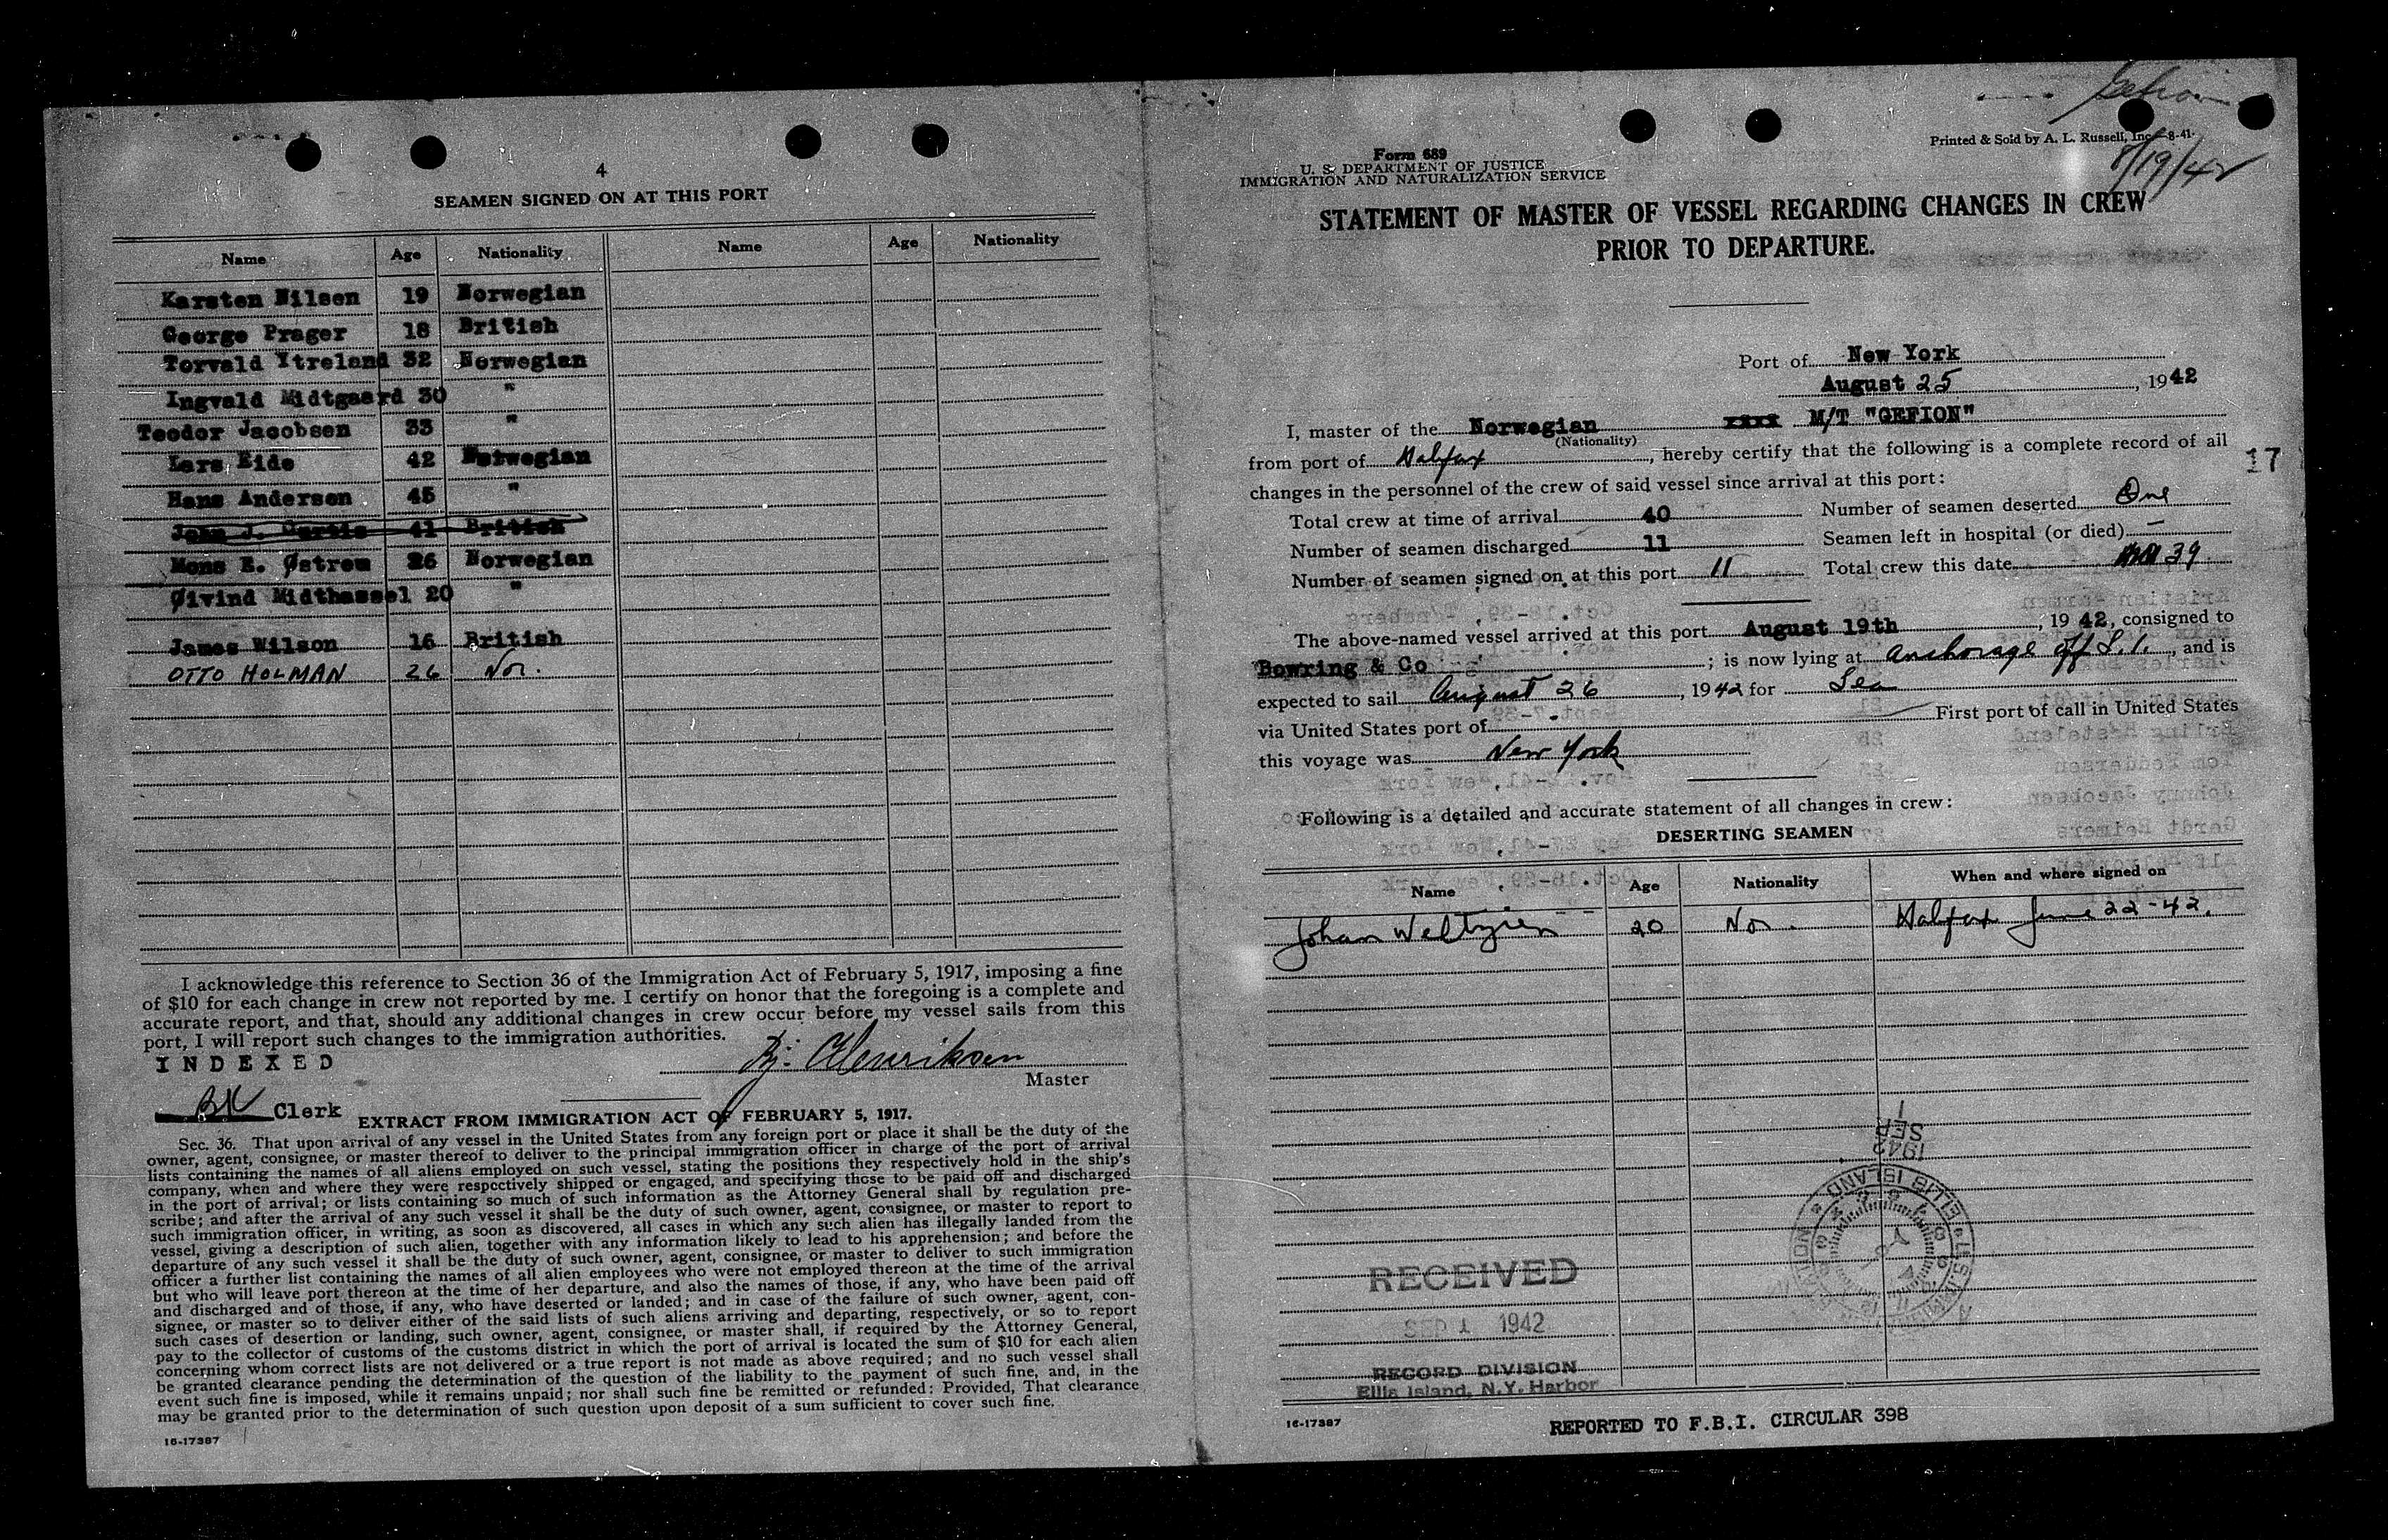 4
SEAMEN SIGNED ON AT THIS PORT
Name Age Nationality Name Age Nationality
Karsten Nilsen 19 Norwegian
George Prager 18 British
Torvald Ytreland 32 Norwegian
Ingvald Midtgaard 30 "
Teodor Jacobsen 33 "
Lars Eide 42 Norwegian
Hans Andersen 45 "
John J. Curtis 41 British
Mons E. Østrem 26 Norwegian
Øivind Midthassel 20 "
James Wilson 16 British
OTTO HOLMAN 26 Nor.
I acknowledge this reference to Section 36 of the Immigration Act of February 5, 1917, imposing a fine
of $10 for each change in crew not reported by me. I certify on honor that the foregoing is a complete and
accurate report, and that, should any additional changes in crew occur before my vessel sails from this
port, I will report such changes to the immigration authorities.
INDEXED
Henriksen
Master
Clerk
EXTRACT FROM IMMIGRATION ACT OF FEBRUARY 5, 1917.
Sec. 36. That upon arrival of any vessel in the United States from any foreign port or place it shall be the duty of the
owner, agent, consignee, or master thereof to deliver to the principal immigration officer in charge of the port of arrival
lists containing the names of all aliens employed on such vessel, stating the positions they respectively hold in the ship's
company, when and where they were respcctively shipped or engaged, and specifying those to be paid off and discharged
in the port of arrival; or lists containing so much of such information as the Attorney General shall by regulation pre-
scribe; and after the arrival of any such vessel it shall be the duty of such owner, agent, consignee, or master to report to
such immigration officer, in writing, as soon as discovered, all cases in which any such alien has illegally landed from the
vessel, giving a description of such alien, together with any information likely to lead to his apprehension; and before the
departure of any such vessel it shall be the duty of such owner, agent, consignee, or master to deliver to such immigration
officer a further list containing the names of all alien employees who were not employed thereon at the time of the arrival
but who will leave port thereon at the time of her departure, and also the names of those, if any, who have been paid off
and discharged and of those, if any, who have deserted or landed; and in case of the failure of such owner, agent, con-
signee, or master so to deliver either of the said lists of such aliens arriving and departing, respectively, or so to report
such cases of desertion or landing, such owner, agent, consignee, or master shall, if required by the Attorney General,
pay to the collector of customs of the customs district in which the port of arrival is located the sum of $10 for each alien
concerning whom correct lists are not delivered or a true report is not made as above required; and no such vessel shall
be granted clearance pending the determination of the question of the liability to the payment of such fine, and, in the
event such fine is imposed, while it remains unpaid; nor shall such fine be remitted or refunded: Provided, That clearance
may be granted prior to the determination of such question upon deposit of a sum sufficient to cover such fine.
16-17387
Printed & Sold by A. L. Russell, Inc. 8-41.
8/19/42
Form 689
U. S. DEPARTMENT OF JUSTICE
IMMIGRATION AND NATURALIZATION SERVICE
STATEMENT OF MASTER OF VESSEL REGARDING CHANGES IN CREW
PRIOR TO DEPARTURE.
Port of New York
August 25, 1942
I, master of the Norwegian xxxx M/T "GEFION"
(Nationality)
from port of Halifax, hereby certify that the following is a complete record of all
17
changes in the personnel of the crew of said vessel since arrival at this port:
Total crew at time of arrival 40 Number of seamen deserted One
Number of seamen discharged 11 Seamen left in hospital (or died) —
Number of seamen signed on at this port 11 Total crew this date 39
The above-named vessel arrived at this port August 19th, 1942, consigned to
Bowring & Co; is now lying at anchorage off S.I., and is
expected to sail August 26, 1942 for Sea
via United States port of - First port of call in United States
this voyage was New York
Following is a detailed and accurate statement of all changes in crew:
DESERTING SEAMEN
Name Age Nationality When and where signed on
Johan Weltzien 20 Nor. Halifax June 22-42.
1
SEP
1942
ELLIS ISLAND
RECEIVED
SEP 1 1942
RECORD DIVISION
Ellis Island, N.Y. Harbor
16-17387
REPORTED TO F.B.I. CIRCULAR 398